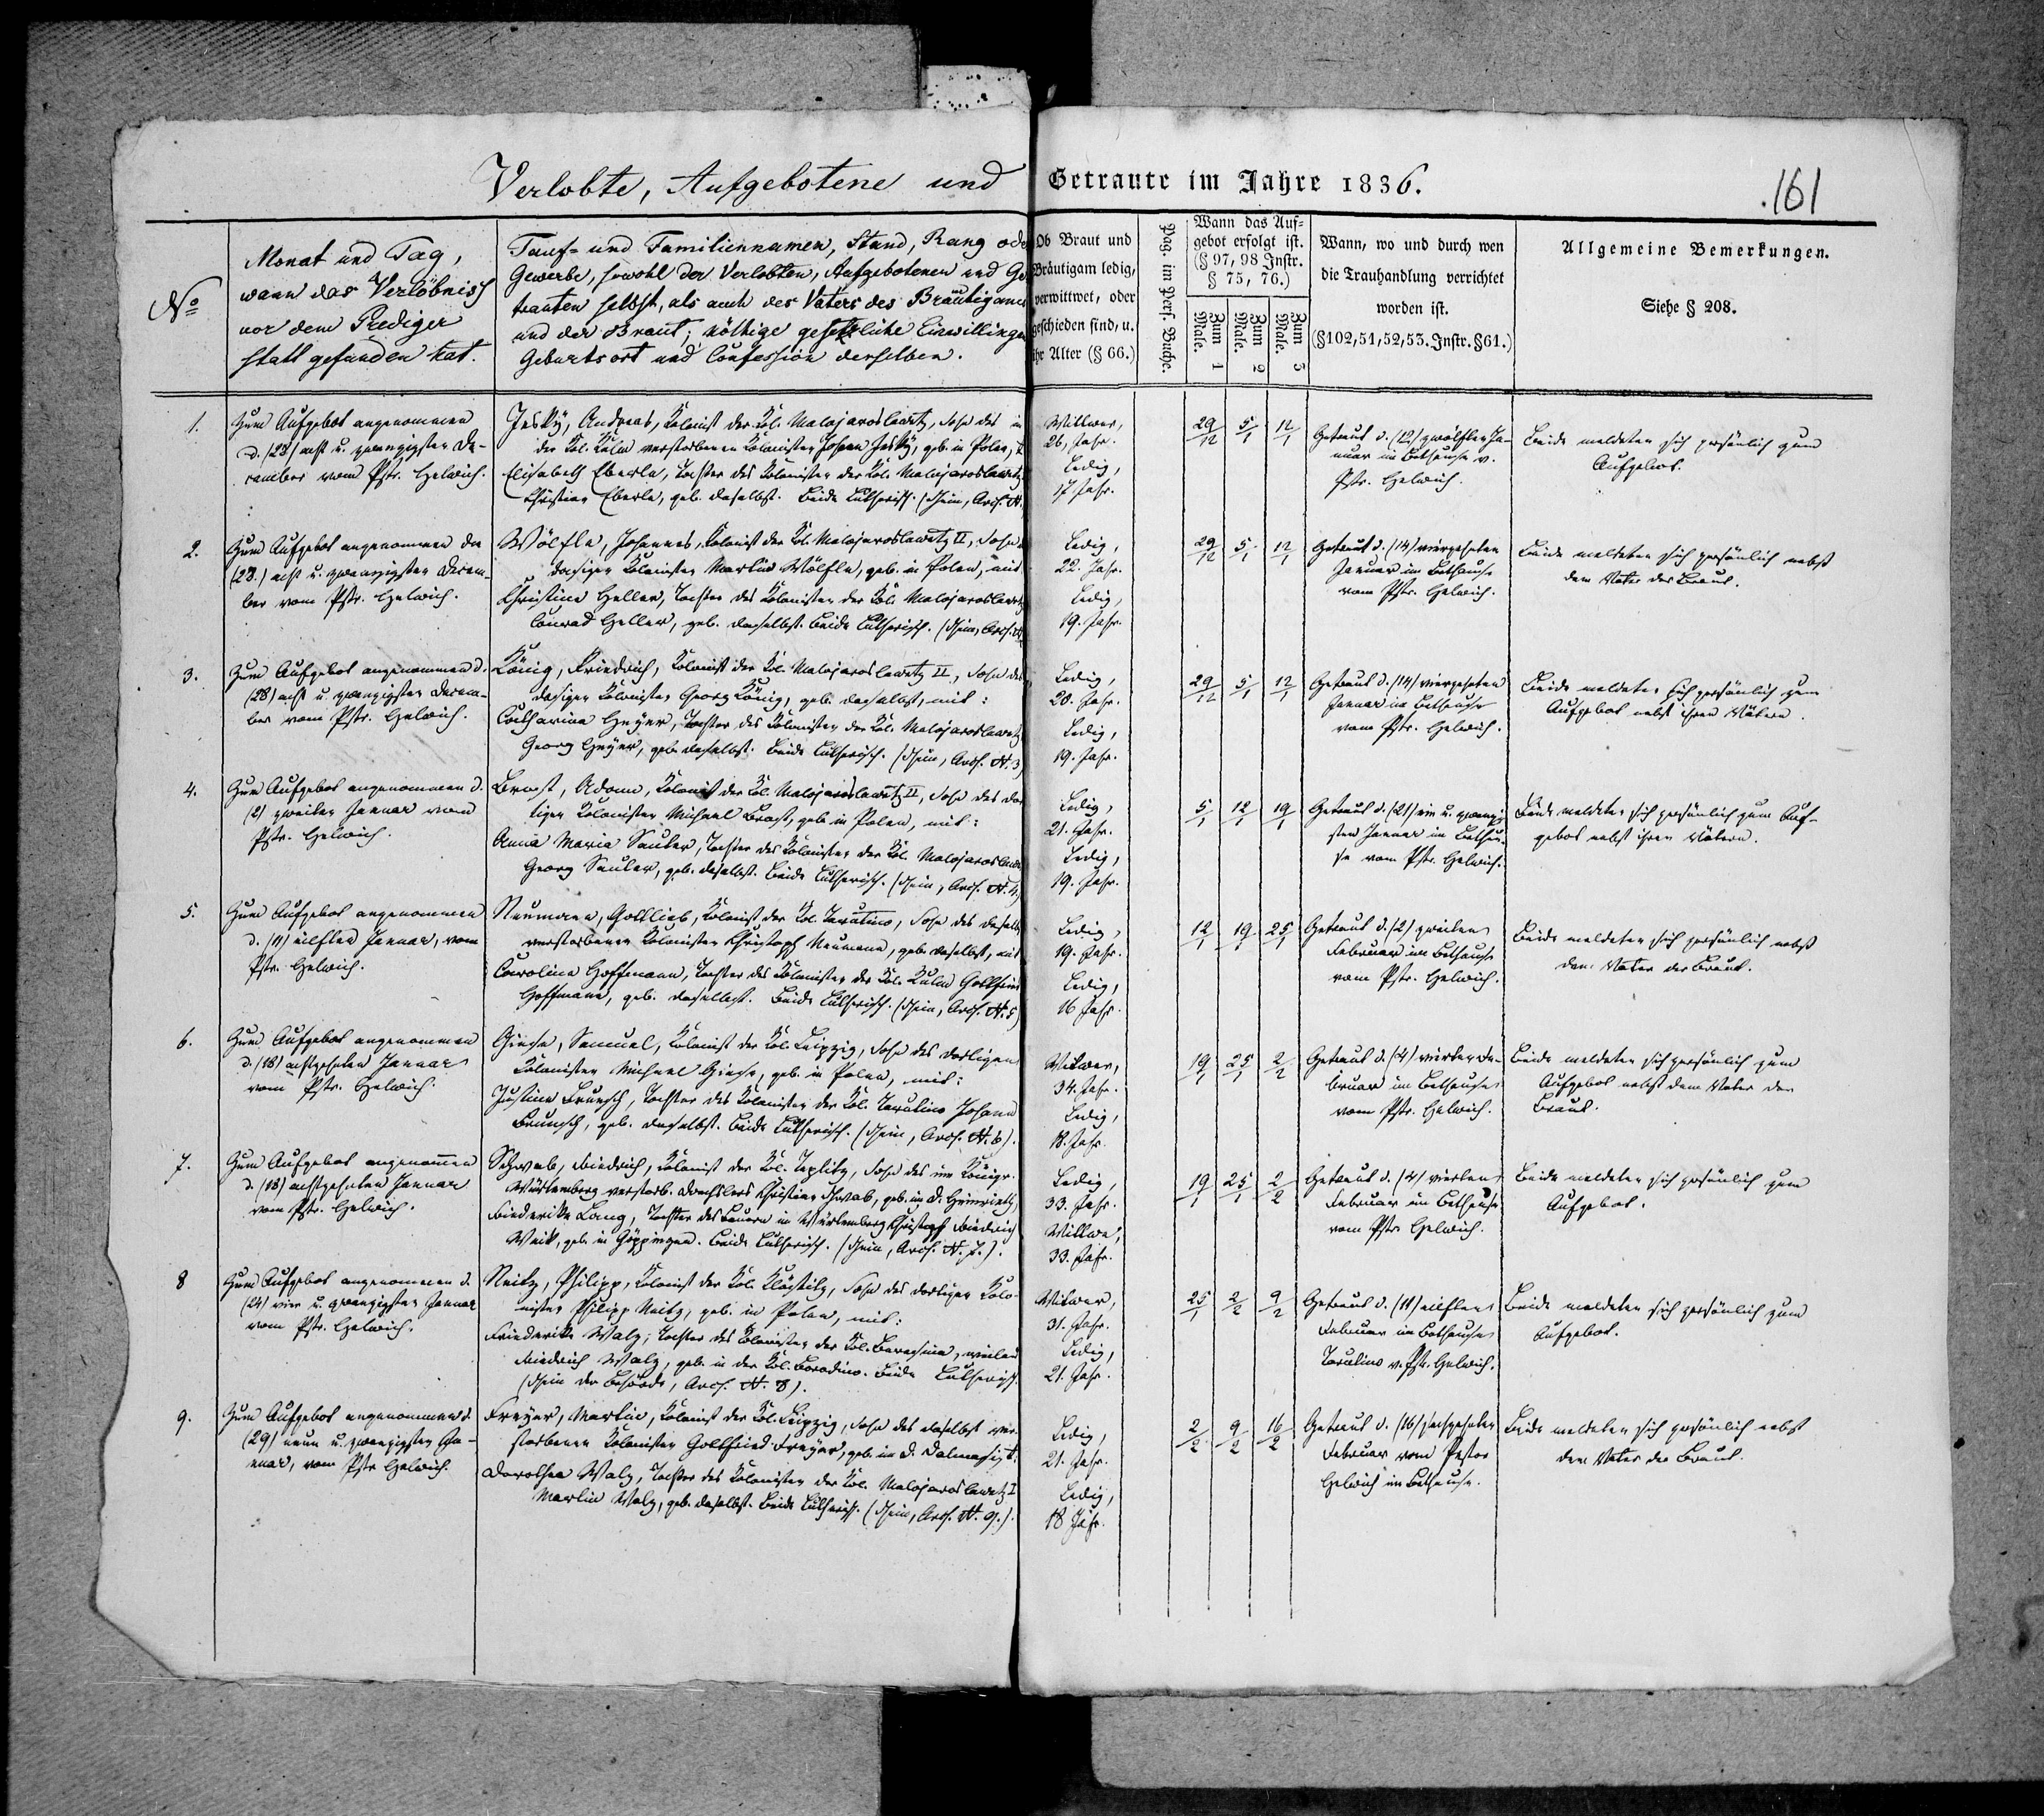 Verlobte, Aufgebotene und Getraute im Jahre 1836.
161
No
Monat und Tag,
wann das Verlöbniß
vor dem Prediger
statt gefunden hat.
Tauf- und Familiennamen, Stand, Rang ode
Gewerbe, sowohl der Verlobten, Aufgebotenen und Ge
trauten selbst, als auch des Vaters des Bräutigams
und der Braut; nöthige gesetzliche Einwilligun
Geburtsort und Confession derselben.
Ob Braut und
Bräutigam ledig,
verwittwet, oder
geschieden sind, u.
ihr Alter (§ 66.)
Pag. im Pers. Buche.
Wann das Auf-
gebot erfolgt ist.
(§ 97, 98 Instr.
§ 75, 76.)
Zum 1 Male.
Zum 2 Male.
Zum 3 Male.
Wann, wo und durch wen
die Trauhandlung verrichtet
worden ist.
(§102,51,52,53.Instr.§61.)
Allgemeine Bemerkungen.
Siehe § 208.
1.
Zum Aufgebot angenommen
d. (28) acht u. zwanzigsten De-
cember vom Pstr. Helwich.
Jesky, Andreas, Kolonist der Kol. Malojaroslawetz, Sohn des in
der Kol. Kulm verstorbenen Kolonisten Johann Jesky, geb. in Polen,
Elisabeth Eberle, Tochter des Kolonisten der Kol. Malojaroslawetz
Christian Eberle, geb. daselbst. Beide Lutherisch. (Schein, Arch. N.
Wittwer,
26, Jahr.
Ledig,
17 Jahr.
29/12 5/1 12/1
Getraut d. (12) zwölften Ja-
nuar im Bethause v.
Pstr. Helwich.
Beide meldeten sich persönlich zum
Aufgebot.
2.
Zum Aufgebot angenommen den
(28.) acht u. zwanzigsten Decem-
ber vom Pstr. Helwich.
Wölfle, Johannes, Kolonist der Kol. Malojaroslawetz II, Sohn d
dasigen Kolonisten Martin Wölfle, geb. in Polen, mit
Christina Heller, Tochter des Kolonisten der Kol. Malojaroslawetz
Conrad Heller, geb. daselbst. Beide Lutherisch. (Schein, Arch. N
Ledig,
22. Jahr.
Ledig,
19. Jahr.
29/12 5/1 12/1
Getraut d. (14) vierzehnten
Januar im Bethause
vom Pstr. Helwich.
Beide meldeten sich persönlich nebst
dem Vater der Braut.
3.
Zum Aufgebot angenommen d.
(28) acht u. zwanzigsten Decem-
ber vom Pstr. Helwich.
König, Friedrich, Kolonist der Kol. Malojaroslawetz II, Sohn des
dasigen Kolonisten Georg König, geb. daselbst, mit:
Catharina Heyer, Tochter des Kolonisten der Kol. Malojaroslawetz
Georg Heyer, geb. daselbst. Beide Lutherisch. (Schein, Arch. N. 3)
Ledig,
20. Jahr.
Ledig,
19. Jahr.
29/12 5/1 12/1
Getraut d. (14) vierzehnten
Januar im Bethause
vom Pstr. Helwich.
Beide meldeten sich persönlich zum
Aufgebot nebst ihren Vätern.
4.
Zum Aufgebot angenommen d.
(2) zweiten Januar vom
Pstr. Helwich.
Brost, Adam, Kolonist der Kol. Malojaroslawetz II, Sohn des dor
tigen Kolonisten Michael Brost, geb. in Polen, mit:
Anna Maria Sauter, Tochter des Kolonisten der Kol. Malojaroslawe
Georg Sauter, geb. daselbst. Beide Lutherisch. (Schein, Arch. N. 4)
Ledig,
21. Jahr.
Ledig,
19. Jahr.
5/1 12/1 19/1
Getraut d. (21) ein u. zwanzig
sten Januar im Bethau-
se vom Pstr. Helwich.
Beide meldeten sich persönlich zum Auf-
gebot nebst ihren Vätern.
5.
Zum Aufgebot angenommen
d. (11) eilften Januar, vom
Pstr. Helwich.
Neumann, Gottlieb, Kolonist der Kol. Tarutino, Sohn des daselb
verstorbenen Kolonisten Christoph Neumann, geb. daselbst, mit
Carolina Hoffmann, Tochter des Kolonisten der Kol. Kulm Gottfried
Hoffmann, geb. daselbst. Beide Lutherisch. (Schein, Arch. N. 5)
Ledig,
19. Jahr.
Ledig,
16 Jahr.
12/1 19/1 25/1
Getraut d. (2) zweiten
Februar im Bethause
vom Pstr. Helwich.
Beide meldeten sich persönlich nebst
dem Vater der Braut.
6.
Zum Aufgebot angenommen
d. (18) achtzehnten Januar
vom Pstr. Helwich.
Giese, Samuel, Kolonist der Kol. Leipzig, Sohn des dortigen
Kolonisten Michael Giese, geb. in Polen, mit:
Justina Brunsch, Tochter des Kolonisten der Kol. Tarutino Johann
Brunsch, geb. daselbst. Beide Lutherisch. (Schein, Arch. N. 6).
Witwer,
34. Jahr.
Ledig,
18. Jahr.
19/1 25/1 2/2
Getraut d. (4) vierten Fe-
bruar im Bethause
vom Pstr. Helwich.
Beide meldeten sich persönlich zum
Aufgebot nebst dem Vater der
Braut.
7.
Zum Aufgebot angenommen
d. (18) achtzehnten Januar
vom Pstr. Helwich.
Schwab, Friedrich, Kolonist der Kol. Teplitz, Sohn des im Königr.
Würtemberg verstorb. Drechslers Christian Schwab, geb. in
Friederike Lang, Tochter des Bauern in Würtemberg Christoph Friedrich
Weik, geb. in Göppingen. Beide Lutherisch. (Schein, Arch. N. 7.).
Ledig,
33. Jahr.
Wittwe,
33. Jahr.
19/1 25/1 2/2
Getraut d. (4) vierten
Februar im Bethause
vom Pstr. Helwich.
Beide meldeten sich persönlich zum
Aufgebot.
8
Zum Aufgebot angenommen d.
(24) vier u. zwanzigsten Januar
vom Pstr. Helwich.
Neitz, Philipp, Kolonist der Kol. Klöstitz, Sohn des dortigen Kolo-
nisten Philipp Neitz, geb. in Polen, mit:
Friederike Walz, Tochter des Kolonisten der Kol. Beresina, weiland
Friedrich Walz, geb. in der Kol. Borodino. Beide Lutherisch.
(Schein der Behörde, Arch. N. 8).
Witwer,
31. Jahr.
Ledig,
21. Jahr.
25/1 2/2 9/2
Getraut d. (11) eilften
Februar im Bethause
Tarutino v. Pstr. Helwich.
Beide meldeten sich persönlich zum
Aufgebot.
9.
Zum Aufgebot angenommen d.
(29) neun u. zwanzigsten Ja-
nuar, vom Pstr Helwich.
Freyer, Martin, Kolonist der Kol. Leipzig, Sohn des daselbst ver-
storbenen Kolonisten Gottfried Freyer, geb. in
Dorothea Walz, Tochter des Kolonisten der Kol. Malojaroslawetz I
Martin Walz, geb. daselbst. Beide Lutherisch. (Schein, Arch. N. 9.).
Ledig,
21. Jahr.
Ledig,
18 Jahr.
2/2 9/2 16/2
Getraut d. (16) sechszehnten
Februar vom Pastor
Helwich im Bethause.
Beide meldeten sich persönlich nebst
dem Vater der Braut.